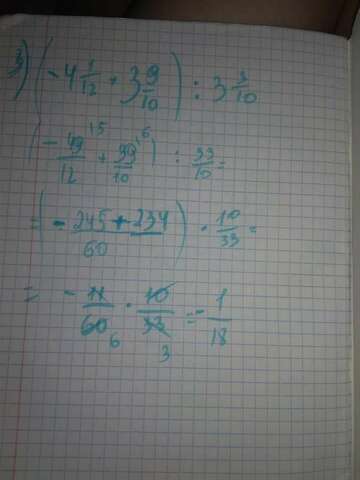 3) (-4 1/12 + 3 9/10) : 3 3/10
(-49/12 ^15 + 39/10 ^6) : 33/10 =
= (-245 + 234 / 60) · 10/33 =
= -11/60 6 · 10/33 3 = -1/18